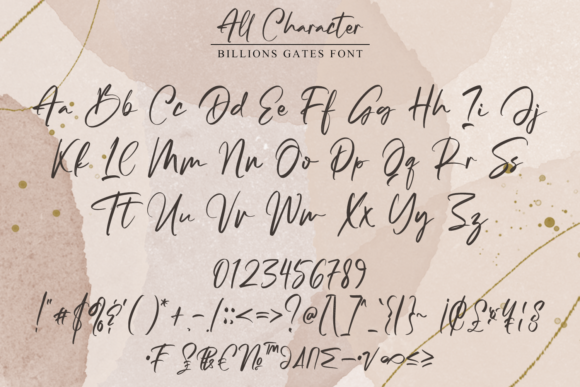 All Character
BILLIONS GATES FONT
Aa Bb Cc Dd Ee Ff Gg Hh Ii Jj
Kk Ll Mm Nn Oo Pp Qq Rr Ss
Tt Uu Vv Ww Xx Yy Zz
0123456789
!"#$%&'()*+,-./:;<=>?@[\]^_`{|}~ ¡¢£¤¥¦§
·₣₤₧€№™∂∆∏∑−∙√∞≤≥